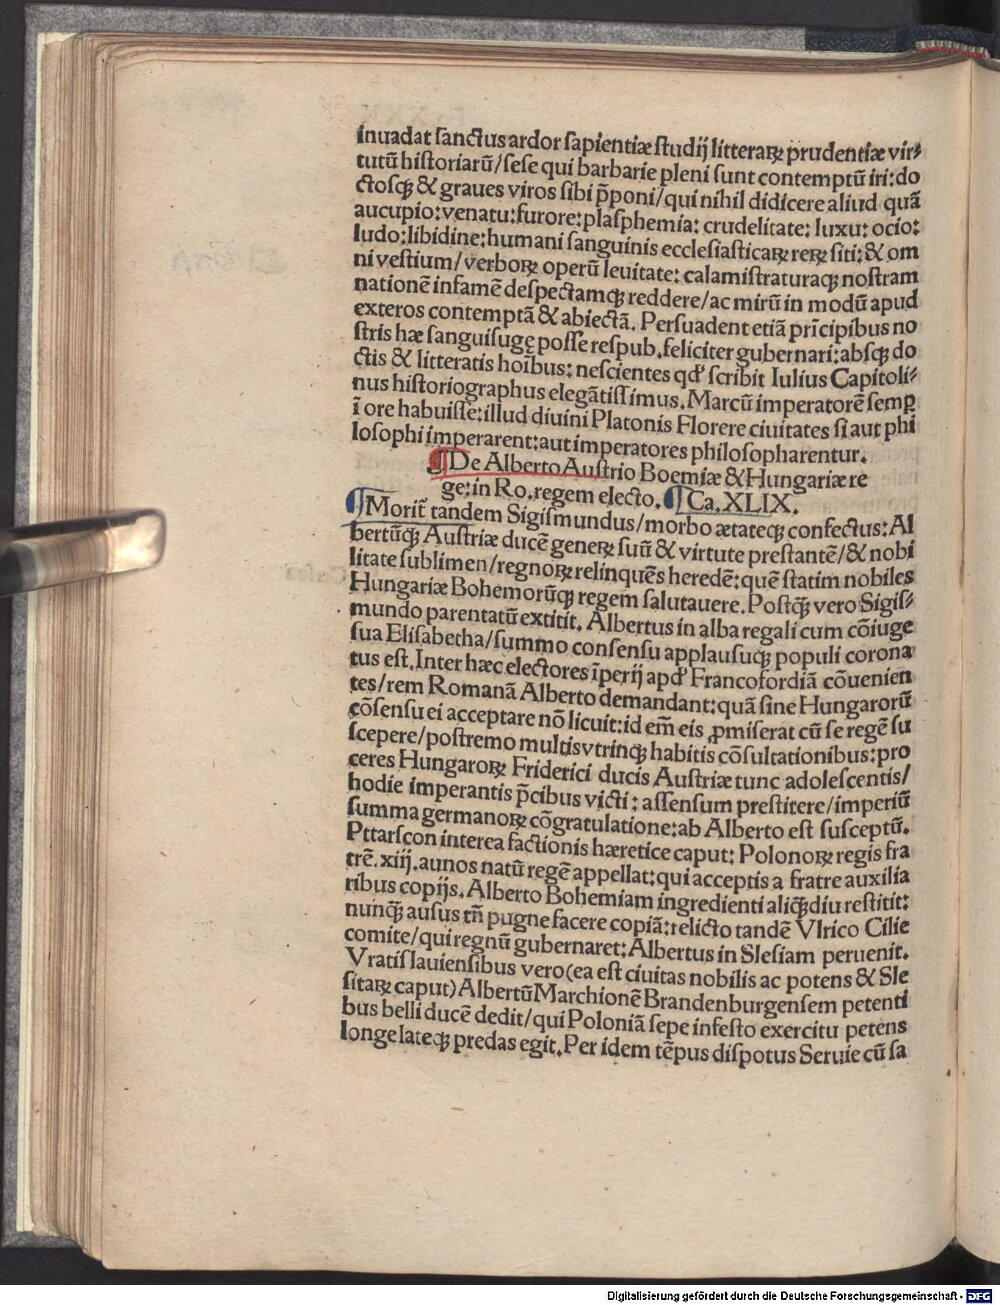 inuadat ſanctus ardor ſapientiæ ſtudij litteraꝝ prudentiæ vir⸗
tutū hiſtoriarū/ſeſe qui barbarie pleni ſunt contemptū iri:do
ctoſqꝫ & graues viros ſibi p̄poni/qui nihil didicere aliud quā
aucupio:venatu:furore:plaſphemia: crudelitate: luxu: ocio:
ludo:libidine:humani ſanguinis eccleſiaſticaꝝ reꝝ ſiti:& om
ni veſtium/verboꝝ operū leuitate: calamiſtraturaqꝫ noſtram
nationē infamē deſpectamqꝫ reddere/ac mirū in modū apud
exteros contemptā & abiectā. Perſuadent etiā prīcipibus no
ſtris hæ ſanguiſugę poſſe reſpub.feliciter gubernari:abſqꝫ do
ctis & litteratis hoībus: neſcientes qd' ſcribit Iulius Capitoli⸗
nus hiſtoriographus elegātiſſimus. Marcū imperatorē ſemꝑ
ī ore habuiſſe:illud diuini Platonis Florere ciuitates ſi aut phi
loſophi imperarent:aut imperatores philoſopharentur.
¶De Alberto Auſtrio Boemiæ & Hungariæ re
ge:in Ro.regem electo. ¶Ca.XLIX.
¶Morit̄ tandem Sigiſmundus/morbo ætateqꝫ confectus: Al
bertūqꝫ Auſtriæ ducē geneꝝ ſuū & virtute preſtantē/& nobi
litate ſublimen/regnoꝝ relinquēs heredē:quē ſtatim nobiles
Hungariæ Bohemorūqꝫ regem ſalutauere. Poſtqꝫ̄ vero Sigiſ⸗
mundo parentatū extitit. Albertus in alba regali cum cōiuge
ſua Eliſabetha/ſummo conſenſu applauſuqꝫ populi corona
tus eſt. Inter hæc electores īperij apd' Francofordiā cōuenien
tes/rem Romanā Alberto demandant:quā ſine Hungarorū
cōſenſu ei acceptare nō licuit:id em̄ eis ꝓmiſerat cū ſe regē ſu
ſcepere/poſtremo multis vtrinqꝫ habitis cōſultationibus:pro
ceres Hungaroꝝ Friderici ducis Auſtriæ tunc adoleſcentis/
hodie imperantis p̄cibus victi: aſſenſum preſtitere/imperiū
ſumma germanoꝝ cōgratulatione:ab Alberto eſt ſuſceptū.
Pttarſcon interea factionis hæretice caput: Polonoꝝ regis fra
trē.xiij.aunos natū regē appellat:qui acceptis a fratre auxilia
ribus copijs. Alberto Bohemiam ingredienti aliqꝫ̄diu reſtitit:
nunqꝫ̄ auſus tn̄ pugne facere copiā:relicto tandē Vlrico Cilie
comite/qui regnū gubernaret: Albertus in Sleſiam peruenit.
Vratiſlauienſibus vero(ea eſt ciuitas nobilis ac potens & Sle
ſitaꝝ caput) Albertū Marchionē Brandenburgenſem petenti
bus belli ducē dedit/qui Poloniā ſepe infeſto exercitu petens
longe lateqꝫ predas egit. Per idem tēpus diſpotus Seruie cū ſa
Digitalisierung gefördert durch die Deutsche Forschungsgemeinschaft - DFG